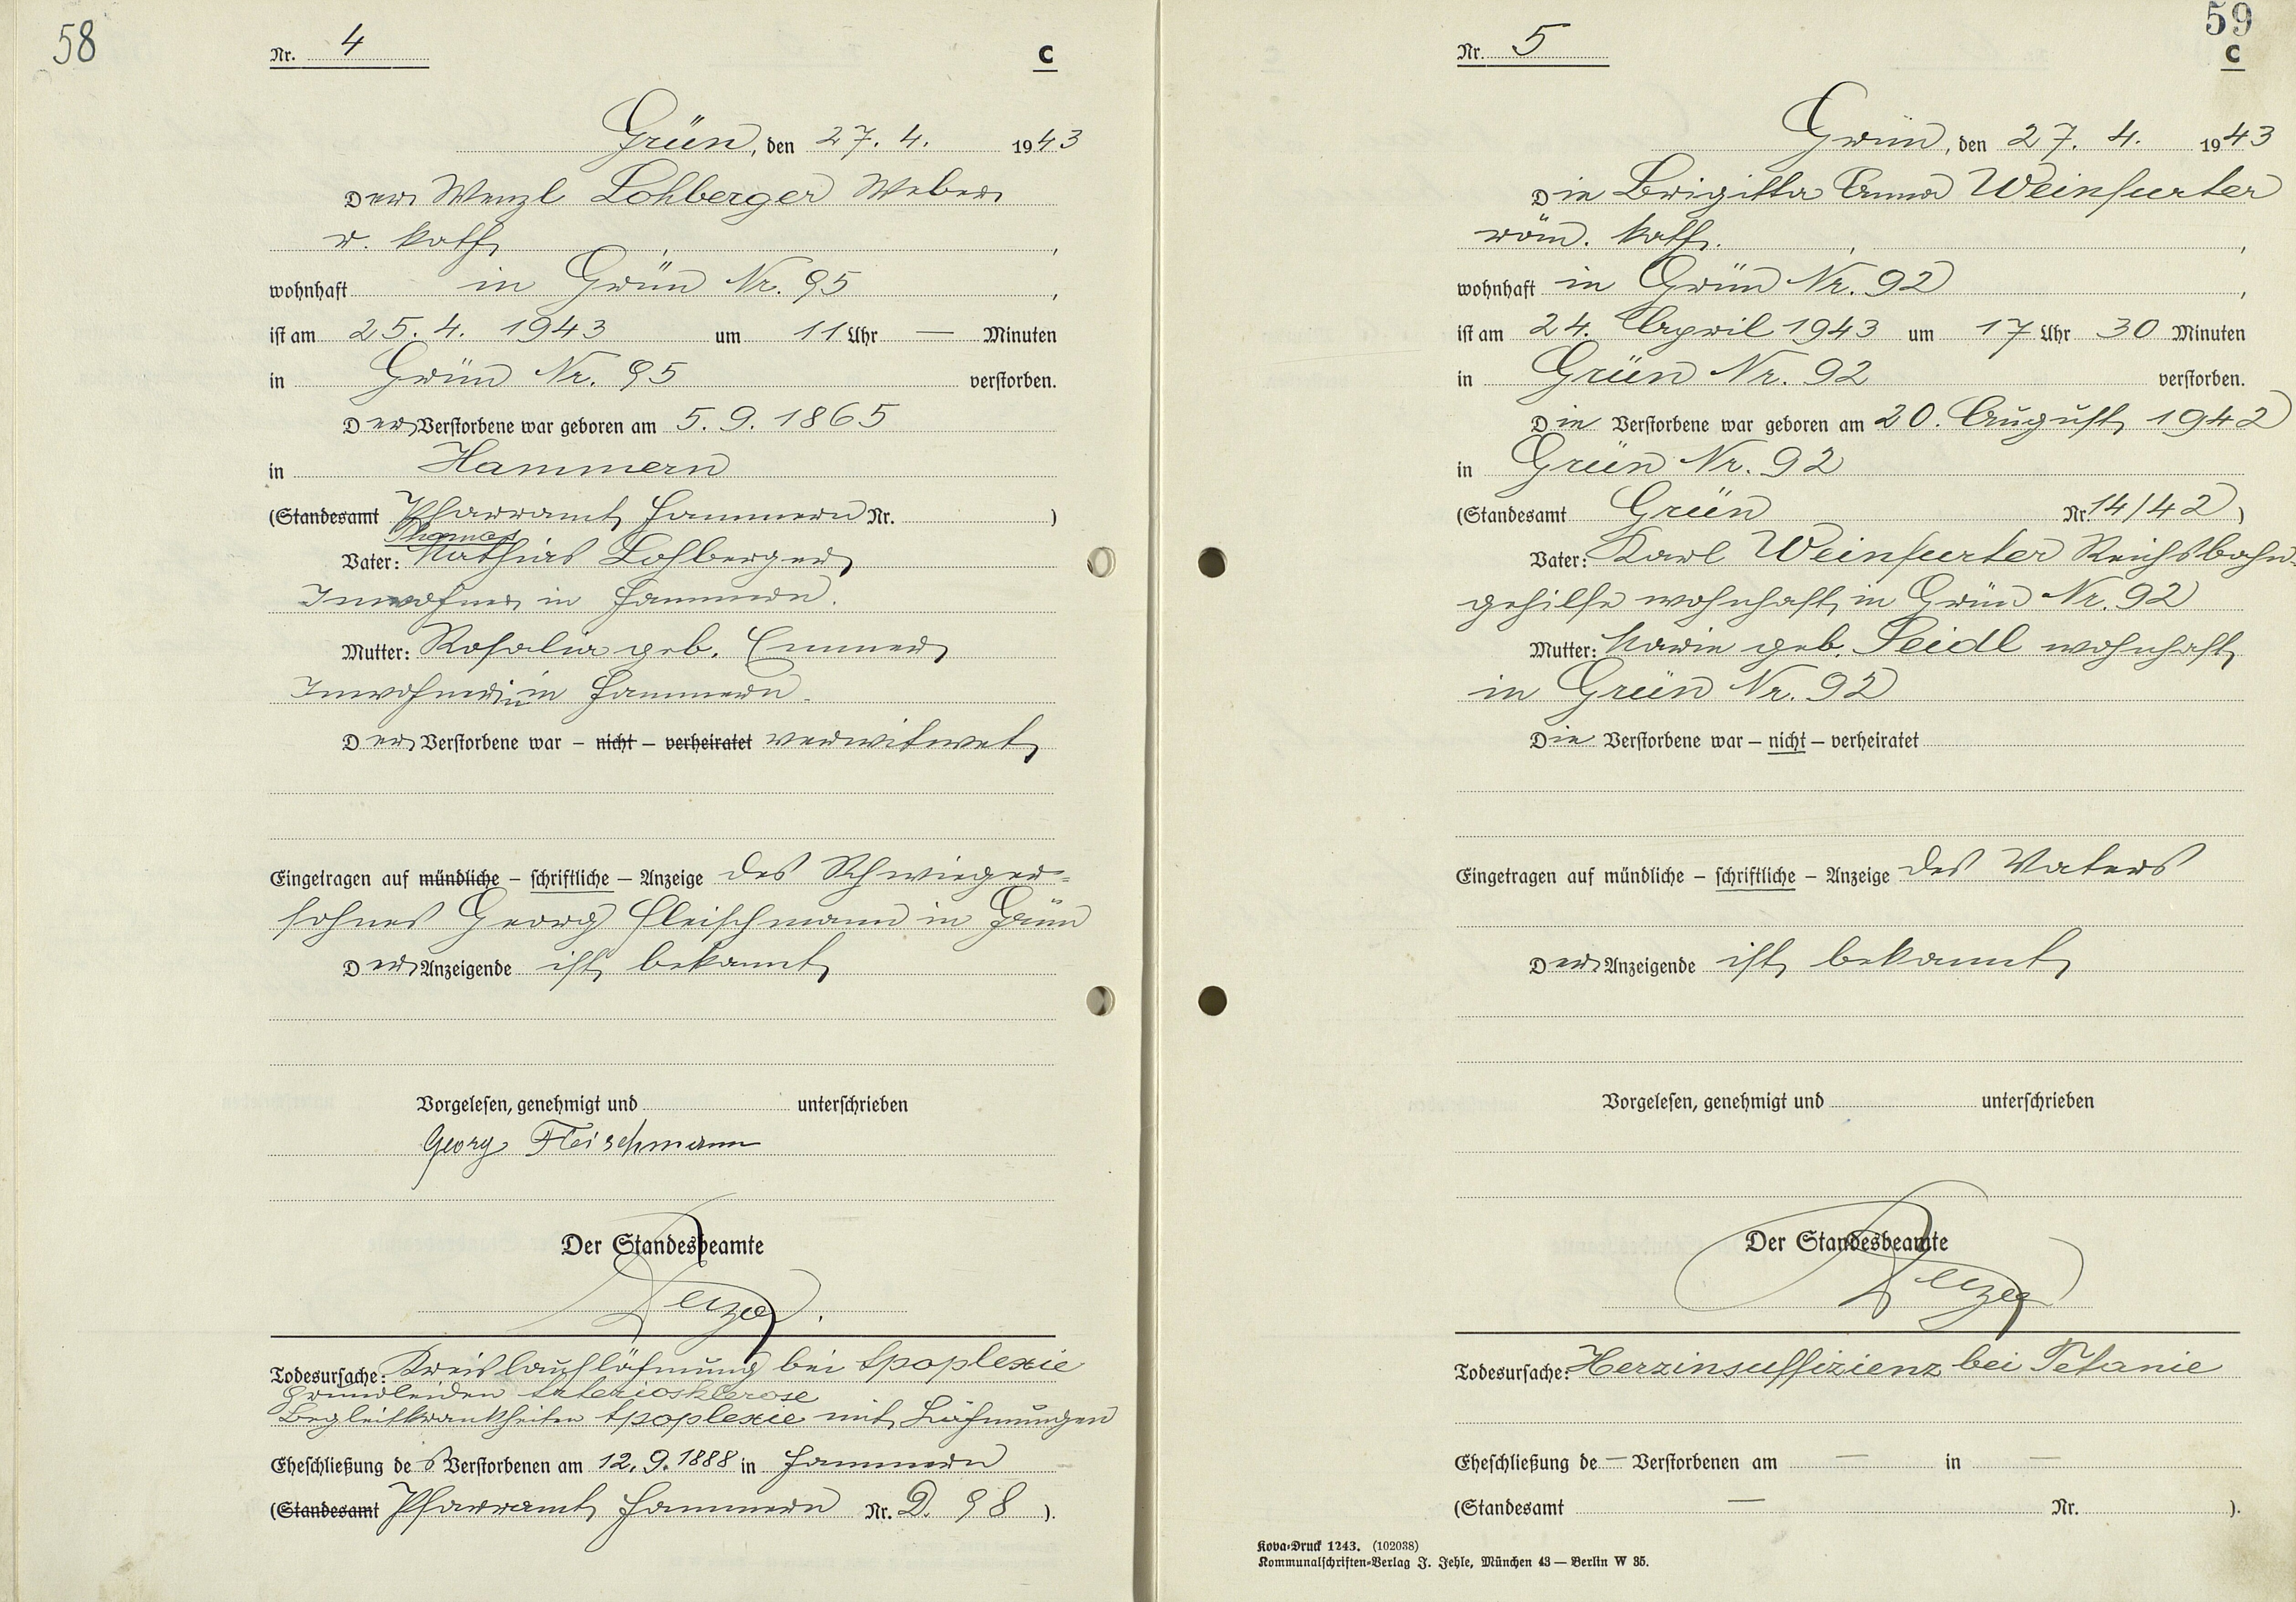 58
Nr. 4
C
Grün, den 27. 4. 1943
Der Wenzl Lohberger Weber
r. kath.,
wohnhaft in Grün Nr. 95,
ist am 25. 4. 1943 um 11 Uhr — Minuten
in Grün Nr. 95 verstorben.
Der Verstorbene war geboren am 5. 9. 1865
in Hammern
(Standesamt Pfarramt Hammern Nr. )
Thomas
Vater: Mathias Lohberger
Inwohner in Hammern.
Mutter: Rosalia geb. Emmer
Inwohnerin in Hammern.
Der Verstorbene war – nicht – verheiratet verwitwet
Eingetragen auf mündliche – schriftliche – Anzeige des Schwieger-
sohnes Georg Fleischmann in Grün
Der Anzeigende ist bekannt
Vorgelesen, genehmigt und unterschrieben
Georg Fleischmann
Der Standesbeamte
Todesursache: Kreislauflähmung bei Apoplexie
Grundleiden Arteriosklerose
Begleitkrankheiten Apoplexie mit Lähmungen
Eheschließung des Verstorbenen am 12. 9. 1888 in Hammern
(Standesamt Pfarramt Hammern Nr. D. 98 ).
59
Nr. 5
C
Grün, den 27. 4. 1943
Die Brigitta Anna Weinfurter
röm. kath. , ,
wohnhaft in Grün Nr. 92 ,
ist am 24. April 1943 um 17 Uhr 30 Minuten
in Grün Nr. 92 verstorben.
Die Verstorbene war geboren am 20. August 1942
in Grün Nr. 92
(Standesamt Grün Nr. 14/42 )
Vater: Karl Weinfurter Reichsbahn-
gehilfe wohnhaft in Grün Nr. 92
Mutter: Marie geb. Seidl wohnhaft
in Grün Nr. 92
Die Verstorbene war – nicht – verheiratet
Eingetragen auf mündliche – schriftliche – Anzeige des Vaters
Der Anzeigende ist bekannt
Vorgelesen, genehmigt und unterschrieben
Der Standesbeamte
Todesursache: Herzinsuffizienz bei Tetanie
Eheschließung de — Verstorbenen am — in —
(Standesamt — Nr. ).
Kova-Druck 1243. (102038)
Kommunalschriften-Verlag J. Jehle, München 43 — Berlin W 35.